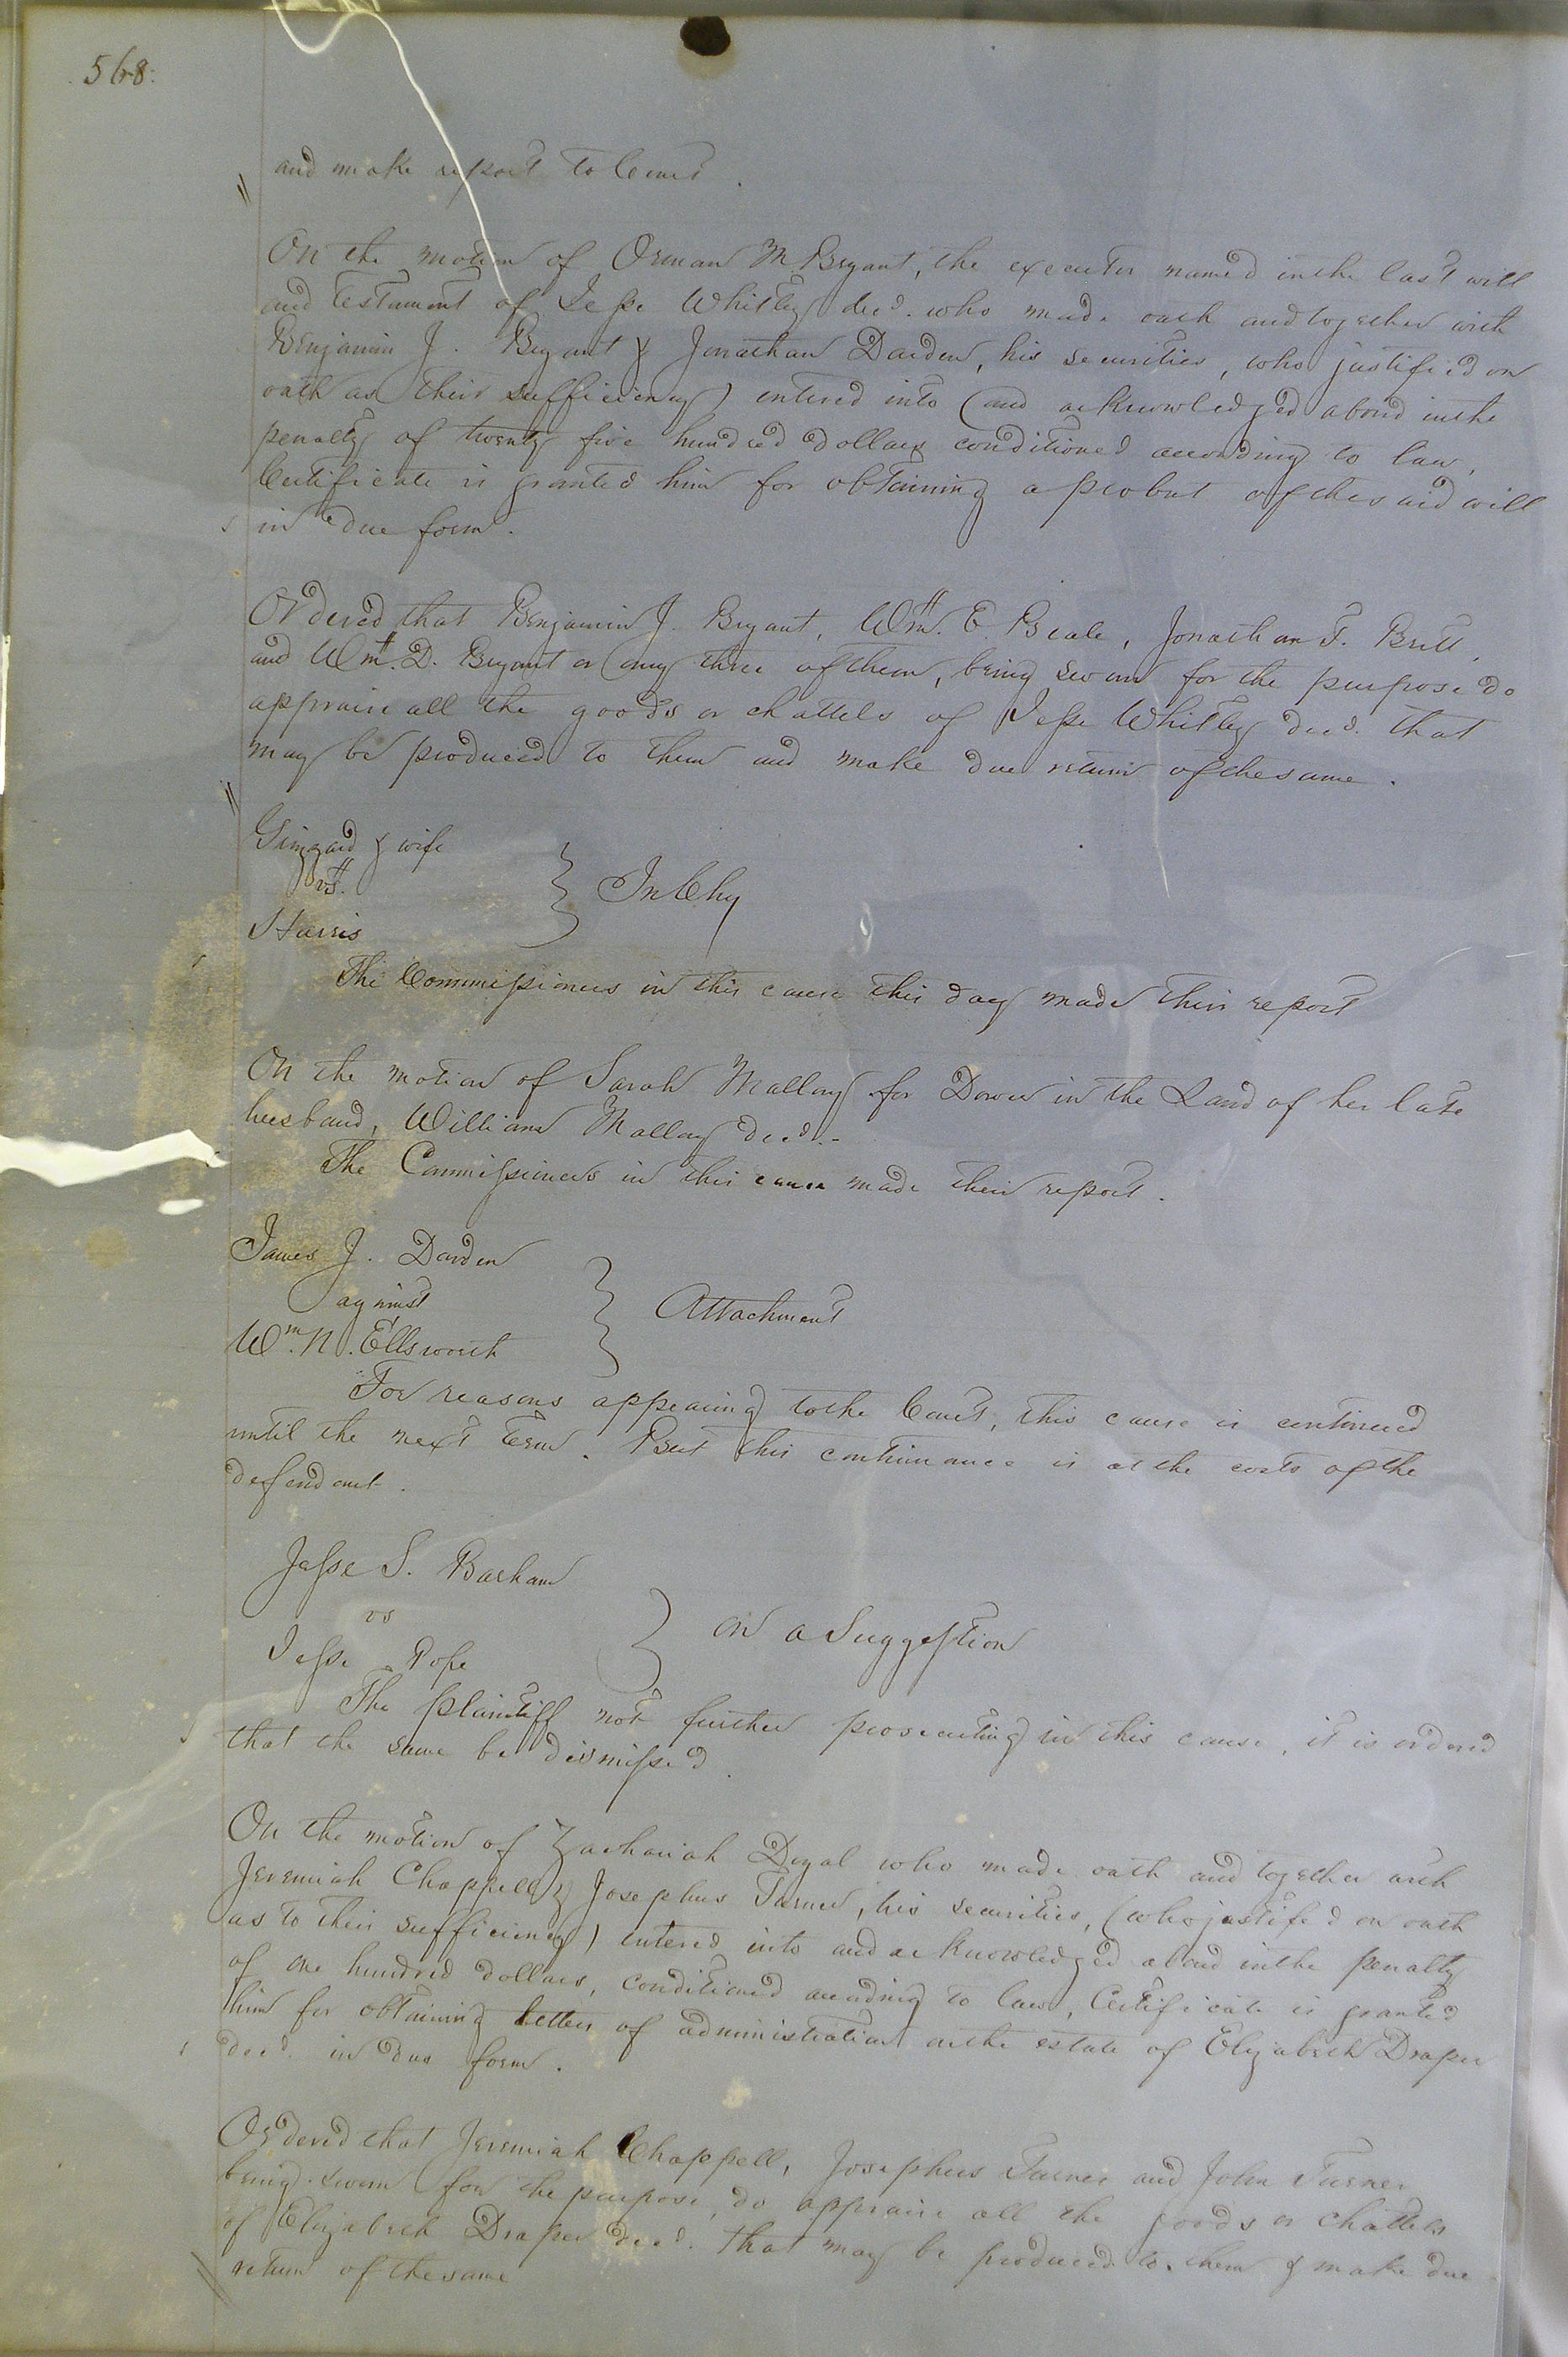 568.
and make report to Court.
On the motion of Orman M. Bryant, the executor named in the last will
and testament of Jesse Whitley decd. who made oath and together with
Benjamin J. Bryant & Jonathan Darden, his securities, who justified on
oath as their sufficiency) entered into (and acknowledged a bond in the
penalty of twenty five hundred dollars conditioned according to law,
Certificate is granted him for obtaining a probat of the said will
in due form.
Ordered that Benjamin J. Bryant, Wm. E. Beale, Jonathan T. Britt,
and Wm. D. Bryant or any three of them, being sworn for the purpose do
appraise all the goods or chattels of Jesse Whitley decd. that
may be produced to them and make due return of the same.
& wife
vs.
Harris
In Chy
The Commissioners in this cause this day made their report
On the motion of Sarah Mallory for Dower in the Land of her late
husband, William Mallory decd.-
The Commissioners in this cause made their report.
James J. Darden
against
Wm. N. Ellsworth
Attachment
For reasons appearing to the Court, this cause is continued
until the next term. But this continuance is at the costs of the
defendant.
Jesse S. Barham
vs
Jesse Pope
on a Suggestion
The plaintiff not further prosecuting in this cause, it is ordered
that the same be dismissed.
On the motion of Zachariah Doyal who made oath and together with
Jeremiah Chappell & Josephus Turner, his securities, (who justifed on oath
as to their sufficiency) entered into and acknowledged a bond in the penalty
of one hundred dollars, conditioned according to law, Certificate is granted
him for obtaining letters of administration on the estate of Elizabeth Draper
decd. in due form.
Ordered that Jeremiah Chappell, Josephus Turner and John Turner
being sworn for the purpose, do appraise all the goods or chattels
of Elizabeth Draper decd. that may be produced to them & make due
return of the same